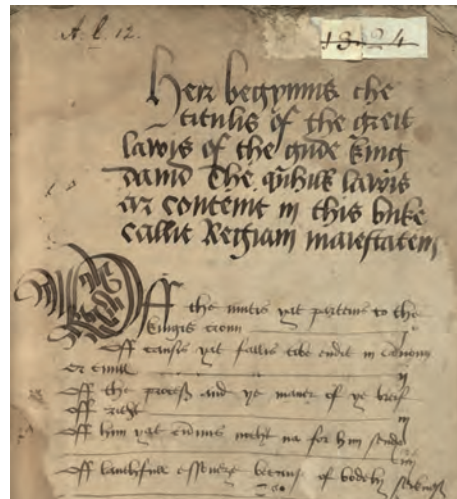 A. l. 12.
13 24
Heir begynnis the
titulis of the greit
lawis of the gude king
dauid The quhilk lawis
ar contenit in this buke
callit Regiam maiestatem
Off the mutis yat pertenis to the
kingis croun
Off causis yat fallis
or
Off the process and ye maner of ye breif
off richt
Off him yat cumis nocht na for him sendis
Off lauchfull essonzeis becaus of bodely seiknes